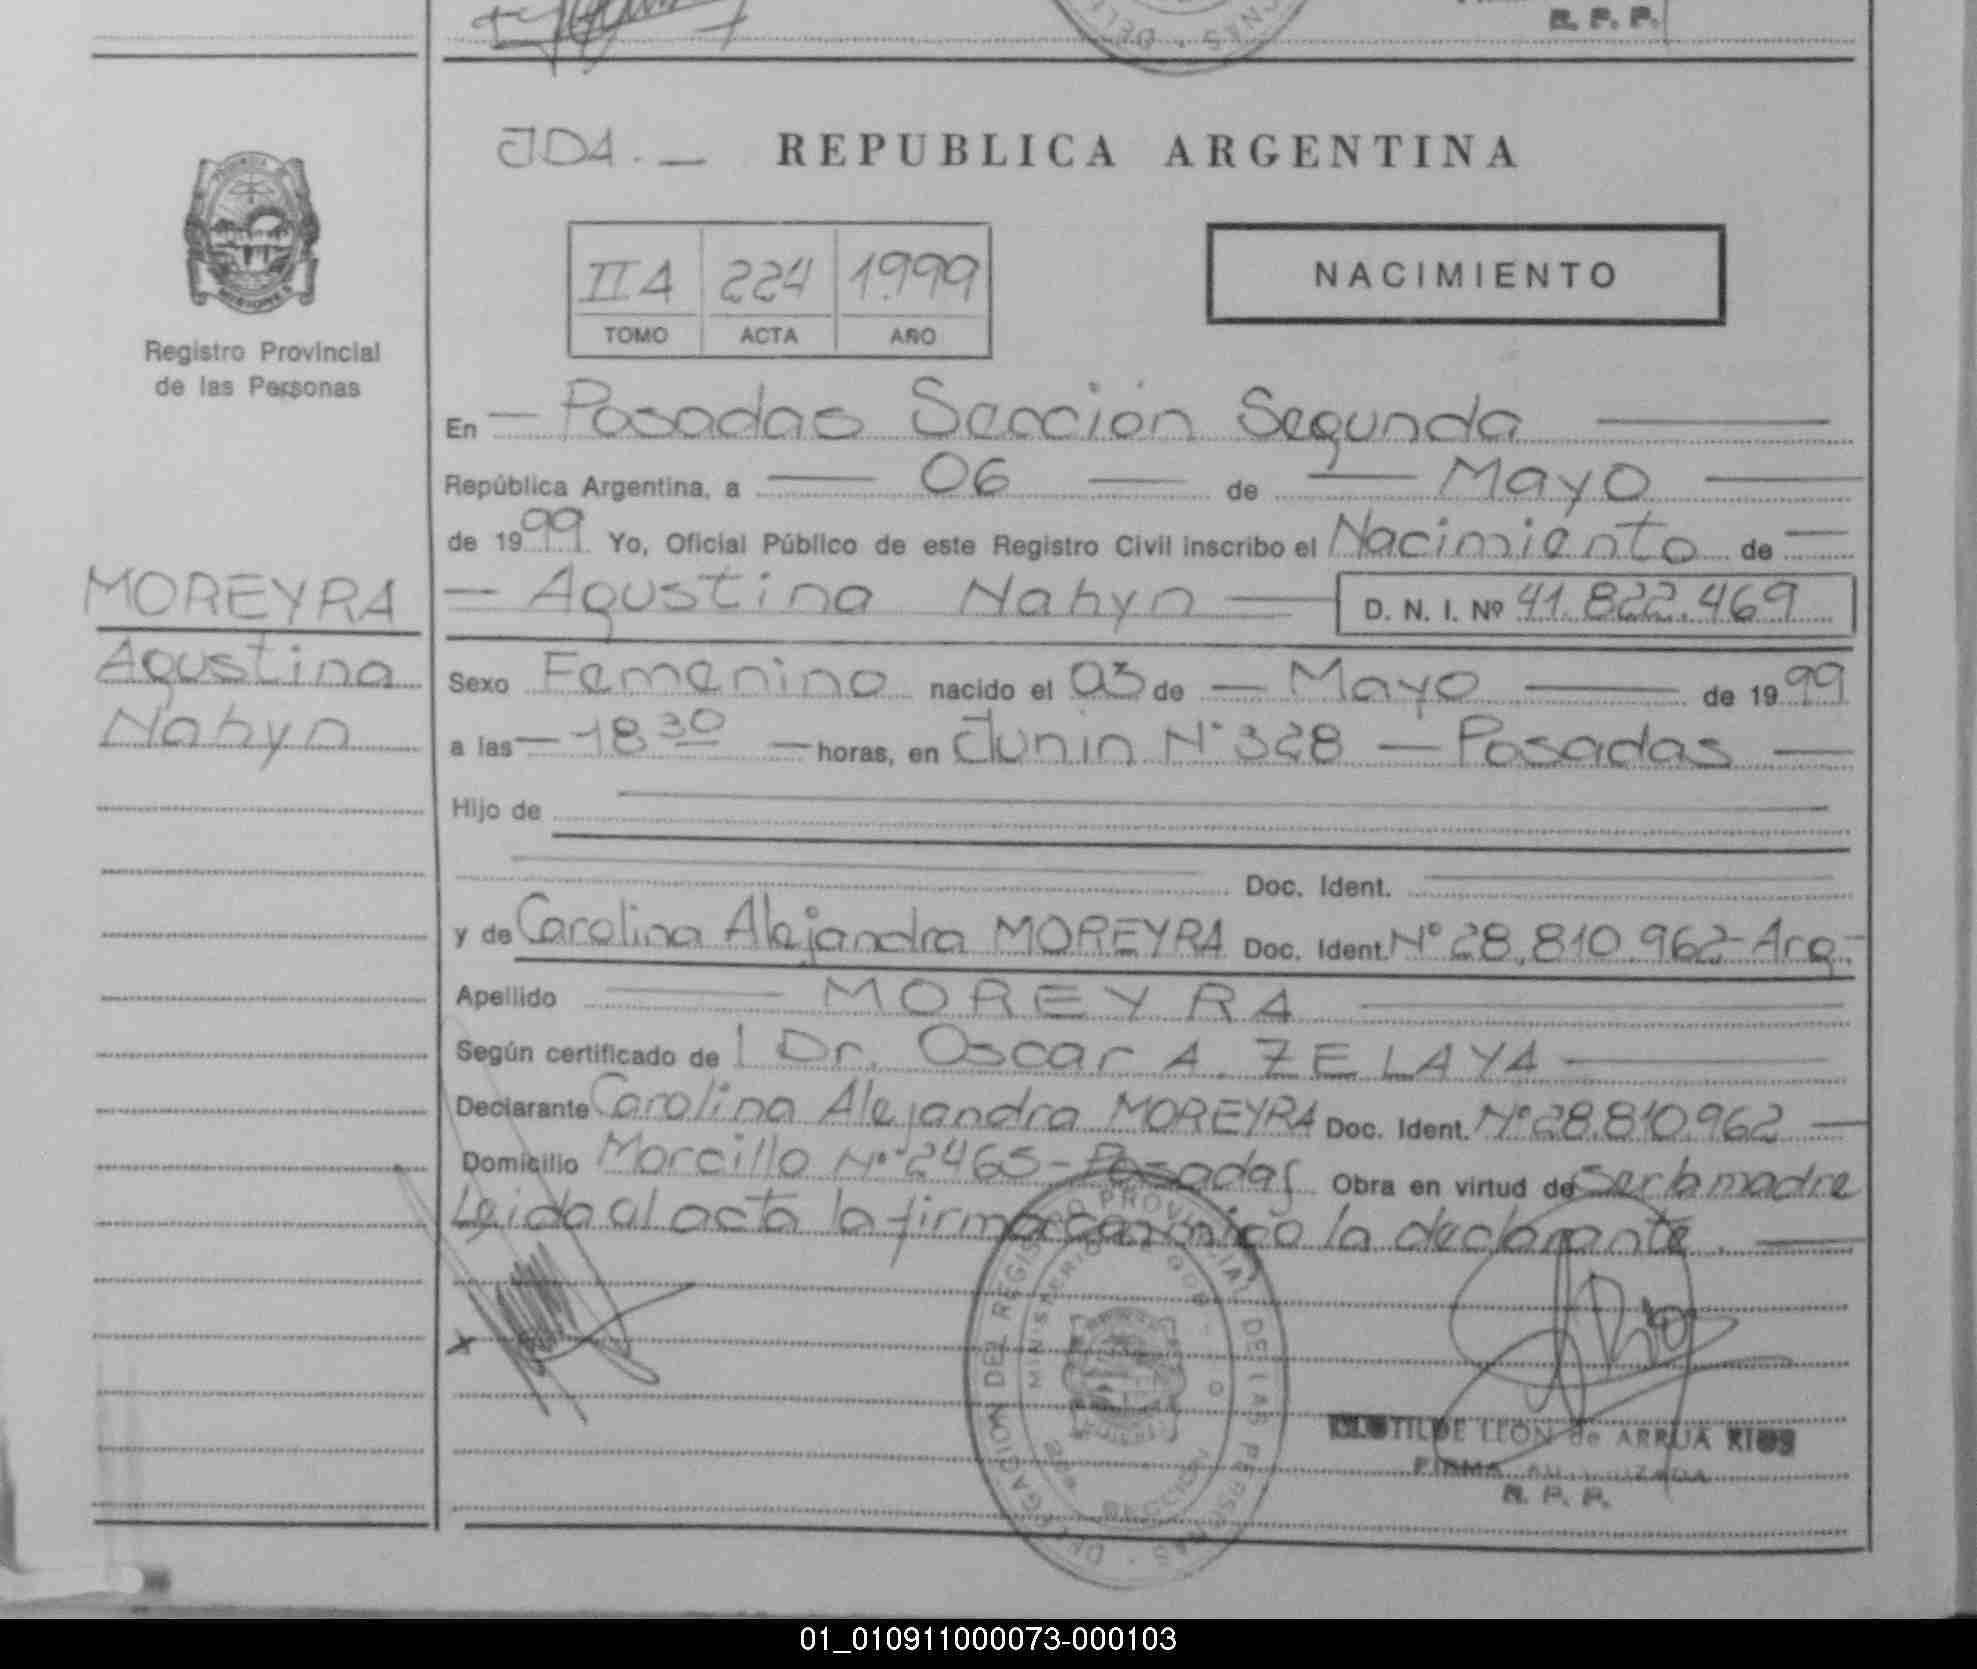 R. P. P.
JDA. —
REPUBLICA ARGENTINA
Registro Provincial
de las Personas
II A 224 1999
TOMO ACTA AÑO
NACIMIENTO
En — Posadas Sección Segunda —
República Argentina, a — 06 — de — Mayo —
de 1999 Yo, Oficial Público de este Registro Civil inscribo el Nacimiento de —
— Agustina Nahyn — D. N. I. Nº 41.822.469
MOREYRA
Agustina
Nahyn
Sexo Femenino nacido el 03 de — Mayo — de 1999
a las — 18 30 — horas, en Junin N° 328 — Posadas —
Hijo de
Doc. Ident.
y de Carolina Alejandra MOREYRA Doc. Ident. N° 28.810.962-Arg.-
Apellido — MOREYRA —
Según certificado de Dr. Oscar A. ZELAYA —
Declarante Carolina Alejandra MOREYRA Doc. Ident. N° 28.810.962 —
Domicilio Morcillo N° 2465 - Posadas Obra en virtud de ser la madre
Leida al acta la firma conmigo la declarante. —
DELEGACION DEL REGISTRO PROVINCIAL DE LAS PERSONAS
MINISTERIO DE GOB
SECCION
CLOTILDE LEON de ARRUA RIOS
FIRMA AUTORIZADA
R. P. P.
01_010911000073-000103